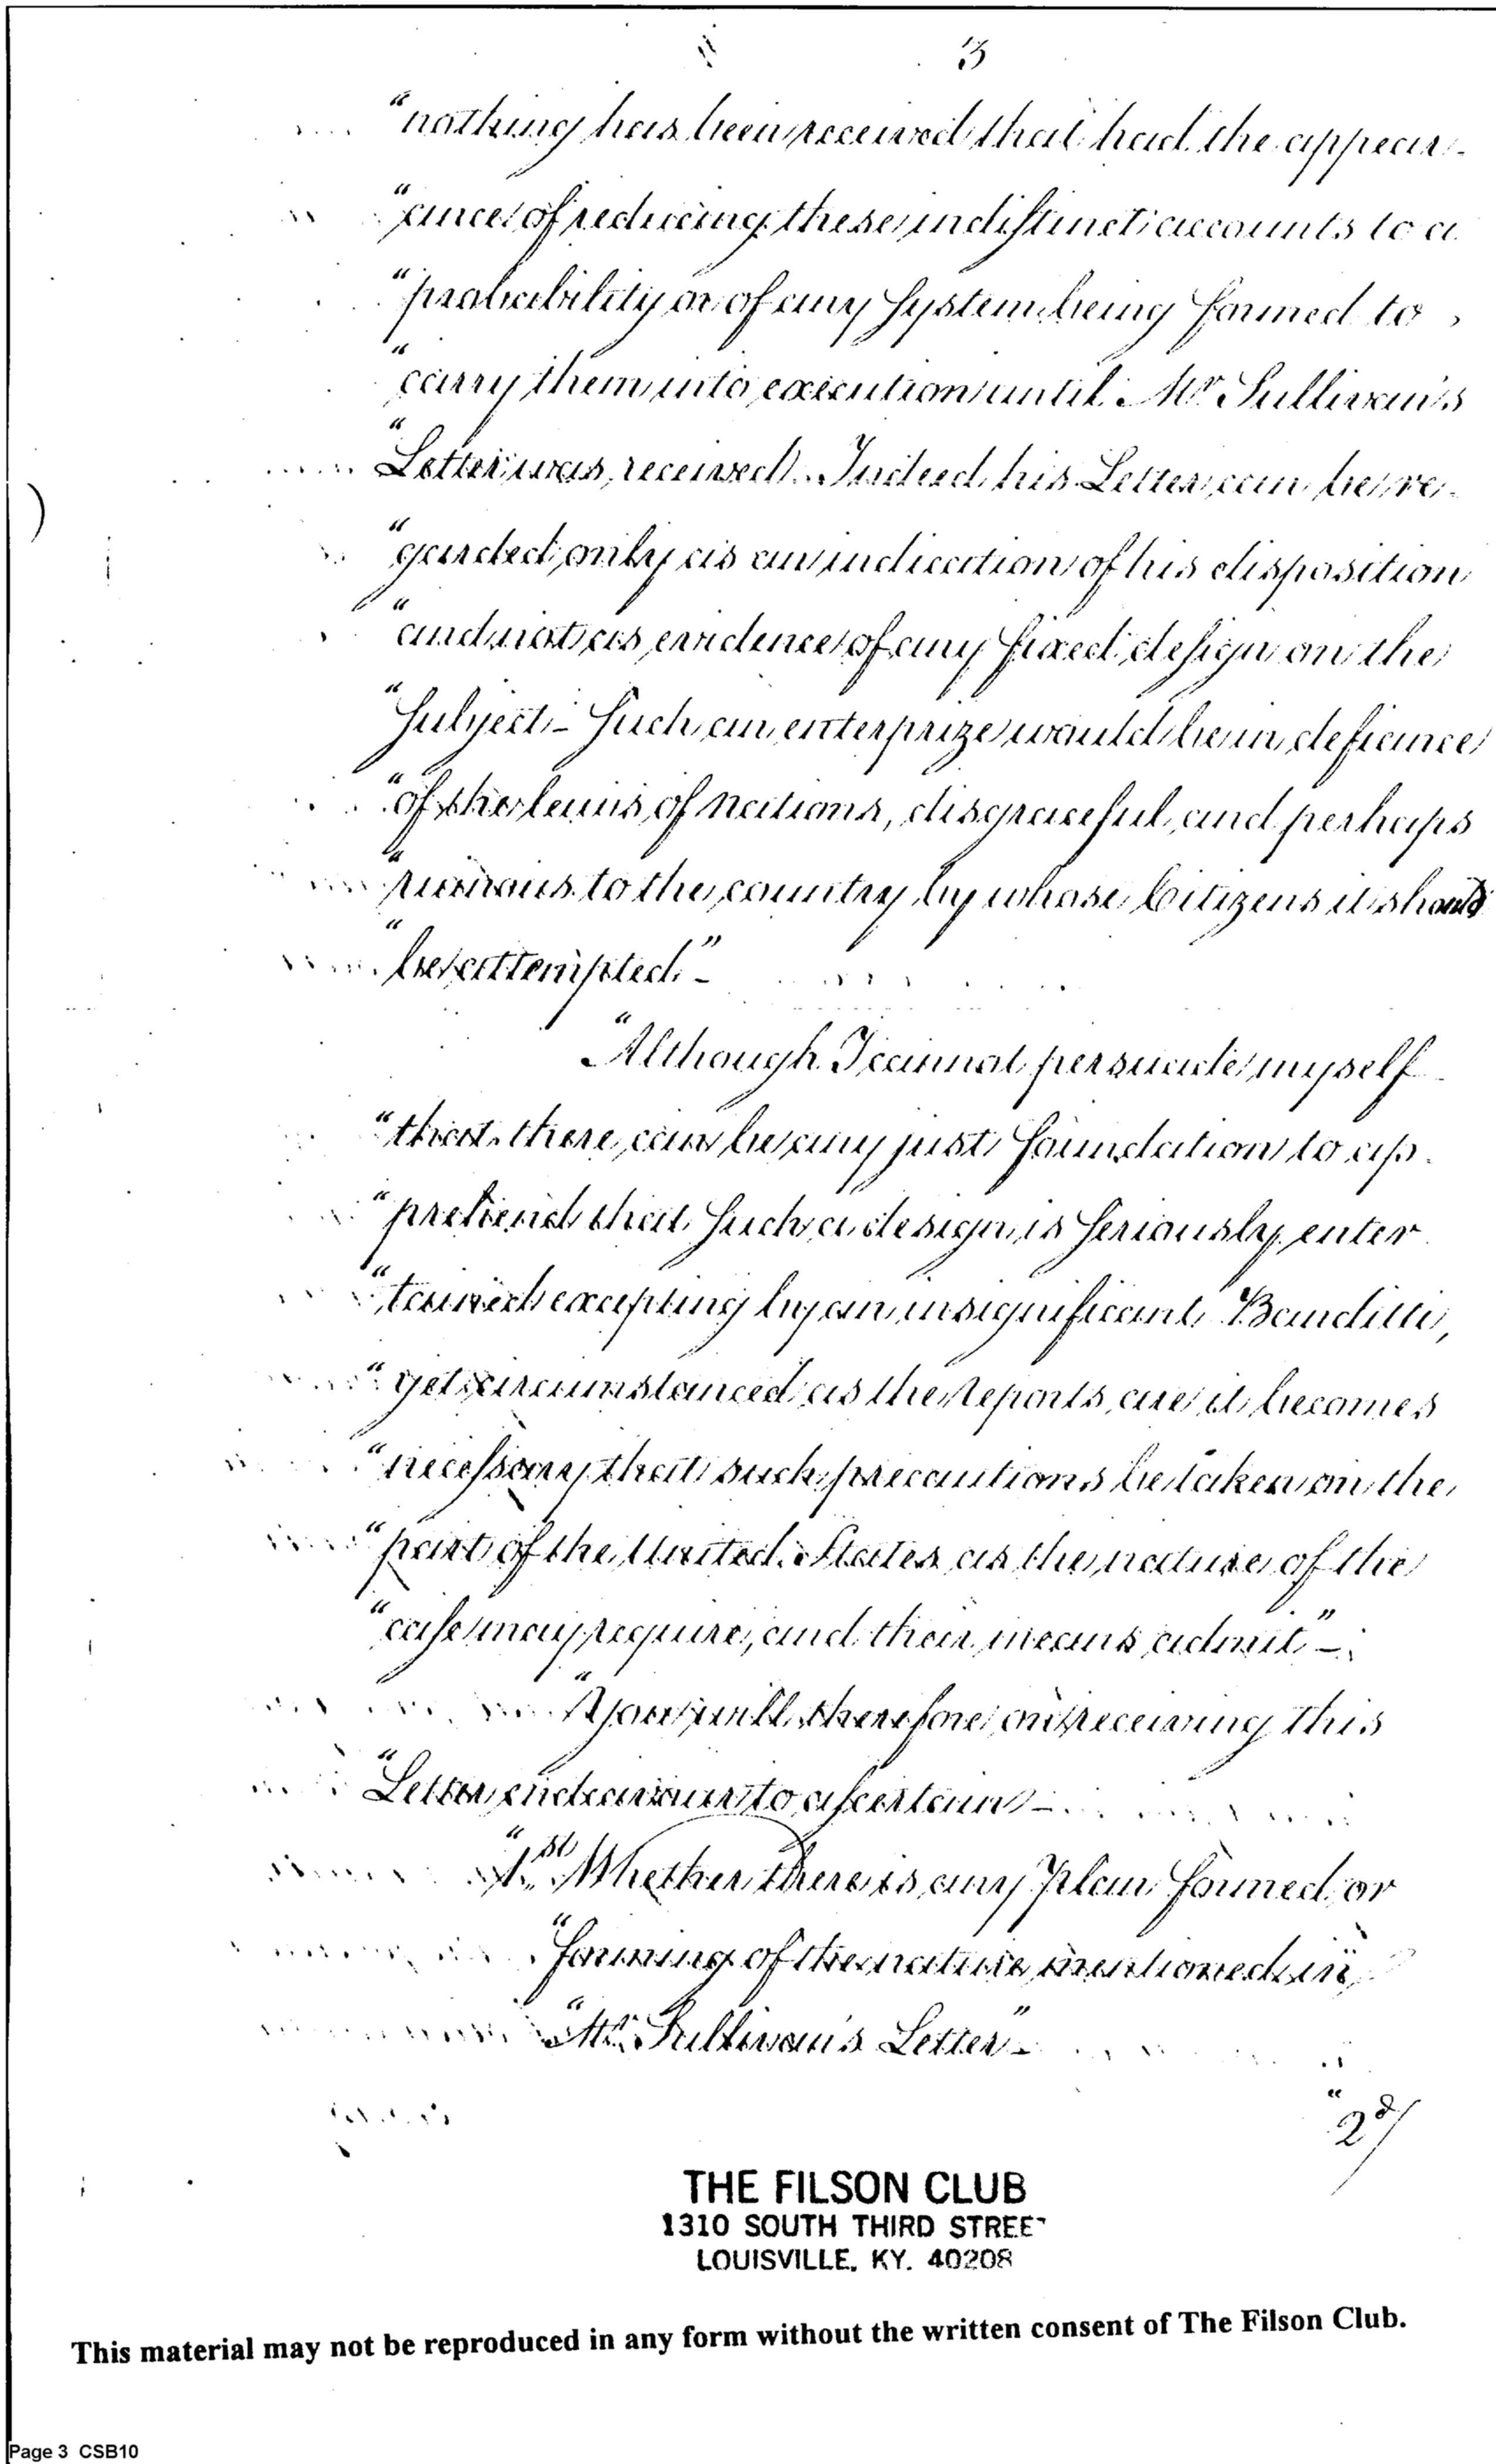 3
"nothing has been received that had the appear-
"ance of reducing these indistinct accounts to a
"probability or of any System being formed to
"carry them into execution until Mr. Sullivan's
"Letter was received. Indeed his Letter can be re-
"garded only as an indication of his disposition
"and not as evidence of any fixed design on the
"Subject - Such an enterprize would be in defiance
"of the laws of Nations, disgraceful, and perhaps
"ruinous to the country by whose Citizens it should
"be attempted." -
"Although I cannot persuade myself
"that there can be any just foundation to ap-
"prehend that Such a design is Seriously enter
"tained excepting by an insignificant Banditti,
"yet circumstanced as the reports are it becomes
"necessary that such precautions be taken on the
"part of the United States as the nature of the
"case may require, and their means admit" -
"You will therefore on receiving this
"Letter endeavour to ascertain -
"1st. Whether there is any Plan formed or
"forming of the nature mentioned in
"Mr. Sullivan's Letter" -
"2d/
THE FILSON CLUB
1310 SOUTH THIRD STREET
LOUISVILLE, KY. 40208
This material may not be reproduced in any form without the written consent of The Filson Club.
Page 3 CSB10